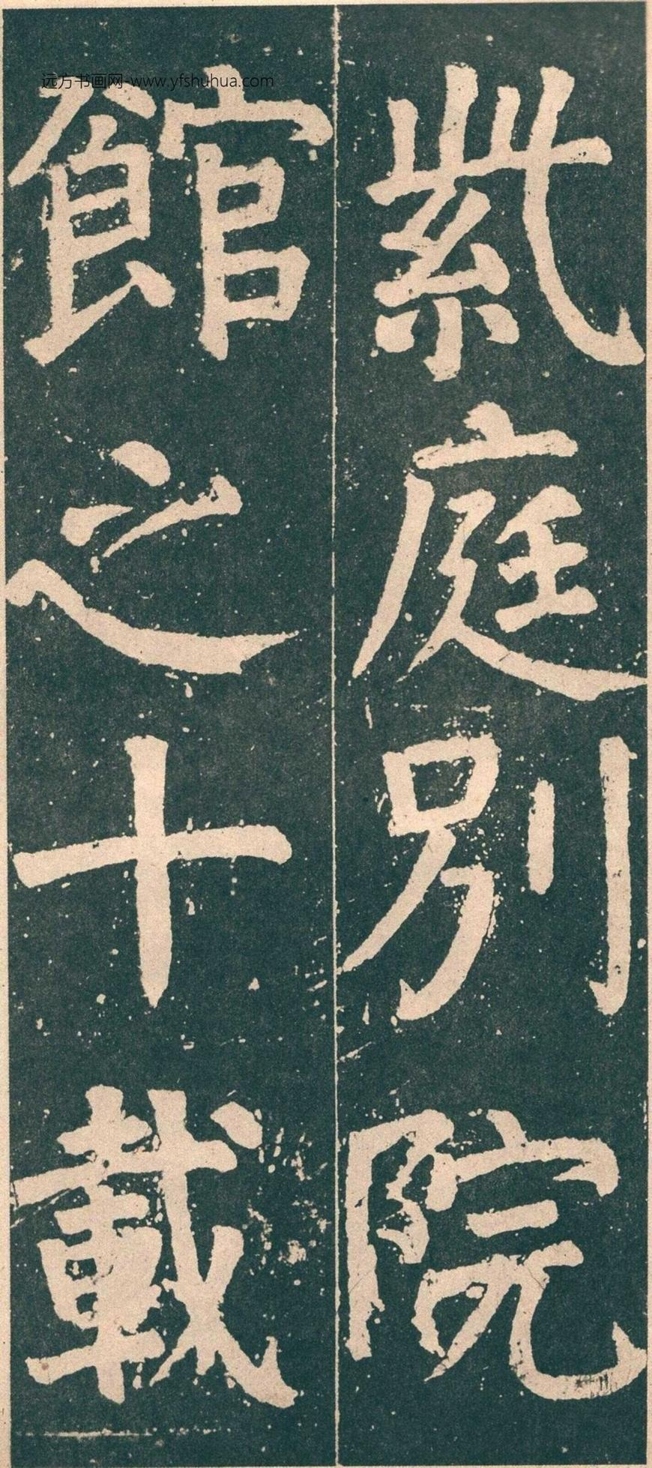 远方书画网-www.yfshuhua.com
紫庭別院
館之十載